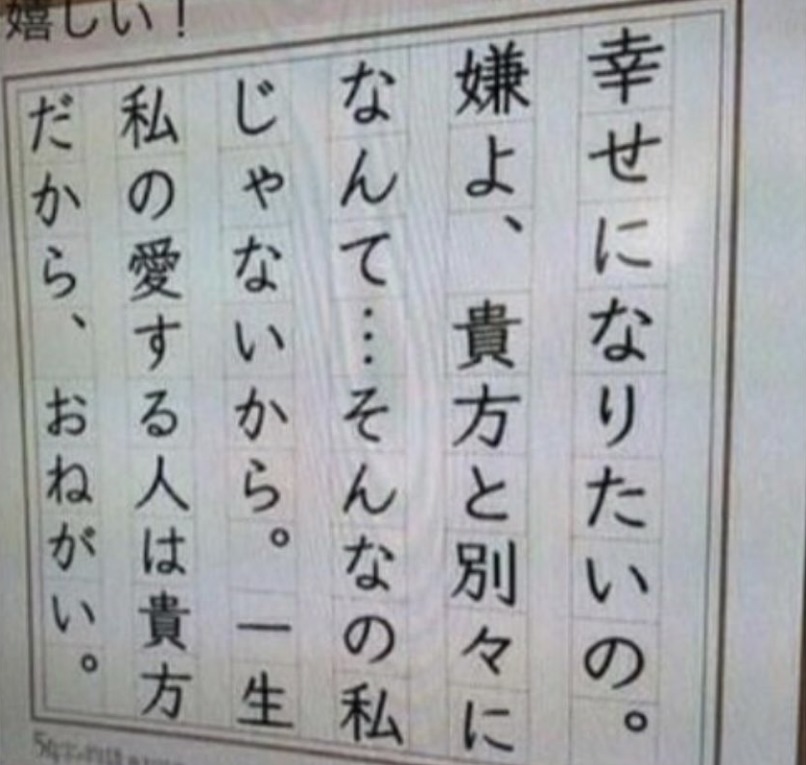 嬉しい！
幸せになりたいの。
嫌よ、貴方と別々に
なんて…そんなの私
じゃないから。一生
私の愛する人は貴方
だから、おねがい。